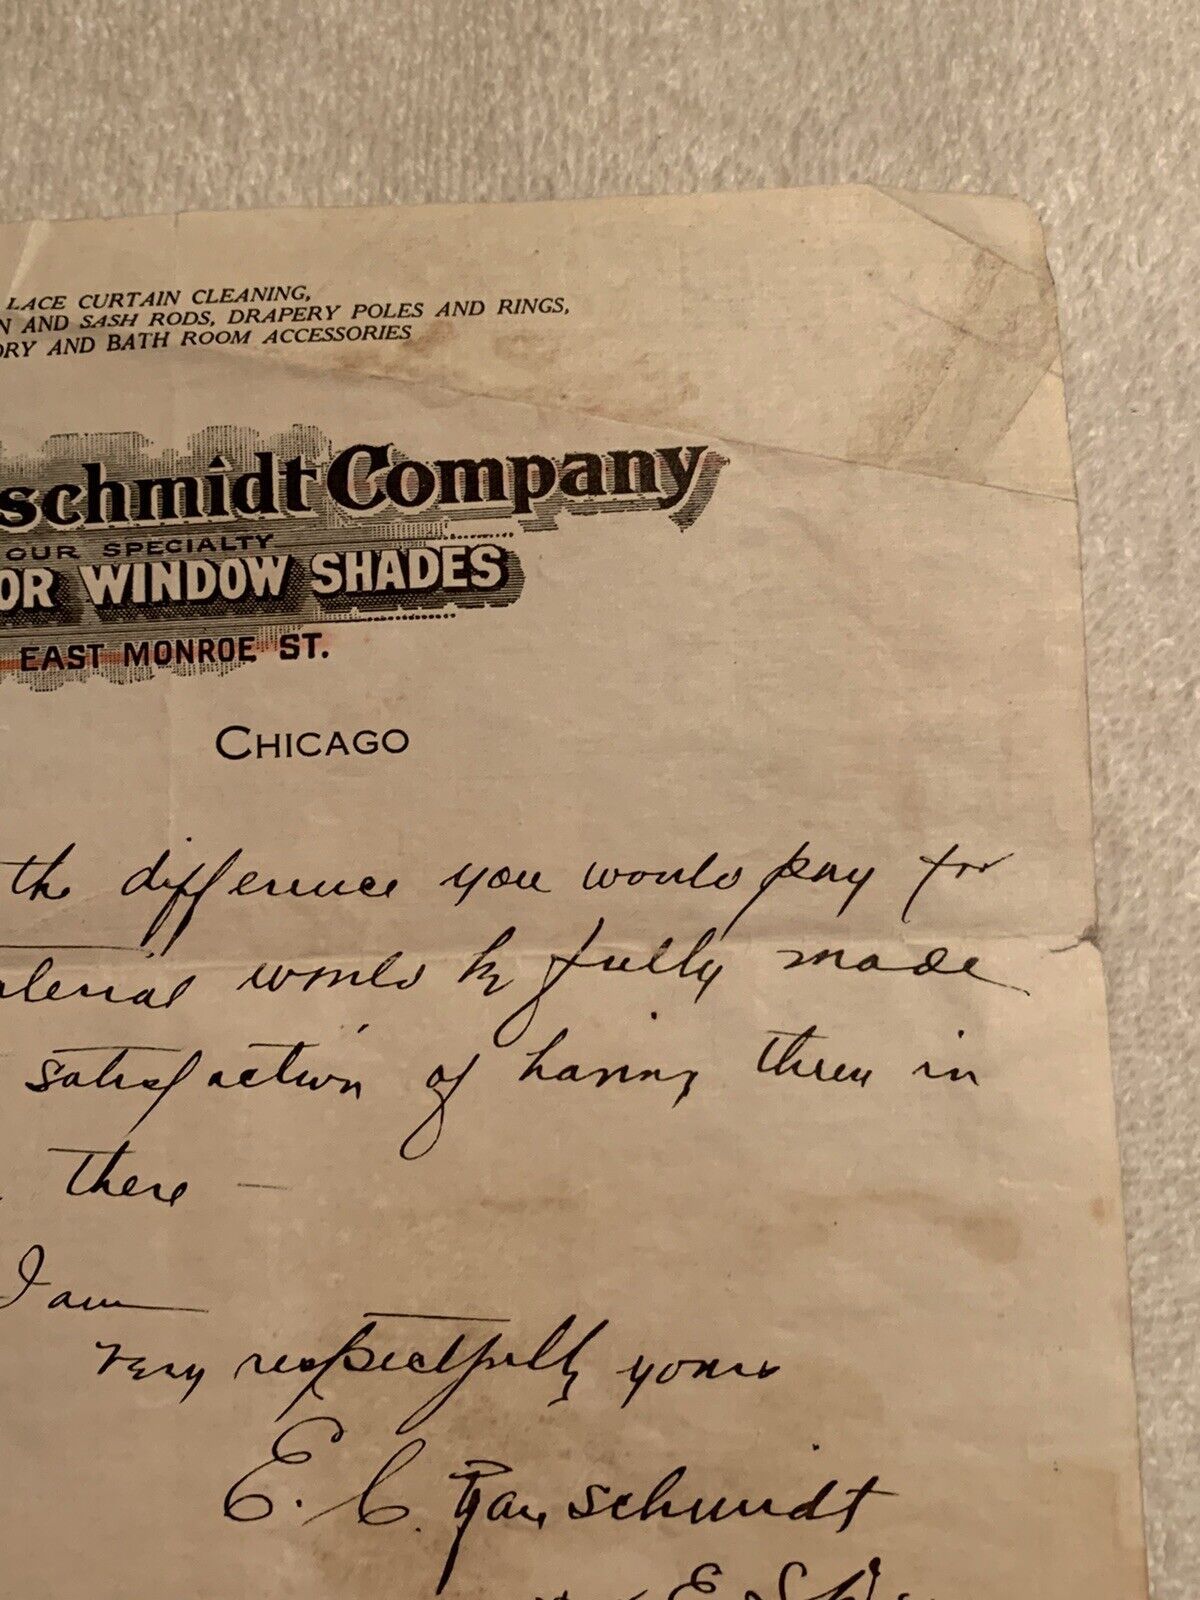 LACE CURTAIN CLEANING,
N AND SASH RODS, DRAPERY POLES AND RINGS,
ORY AND BATH ROOM ACCESSORIES
schmidt Company
OUR SPECIALTY
OR WINDOW SHADES
EAST MONROE ST.
CHICAGO
the difference you would pay for
aterial would be fully made
satisfaction of having them in
there —
I am
Very respectfully yours
E. C. Ganschmidt
E